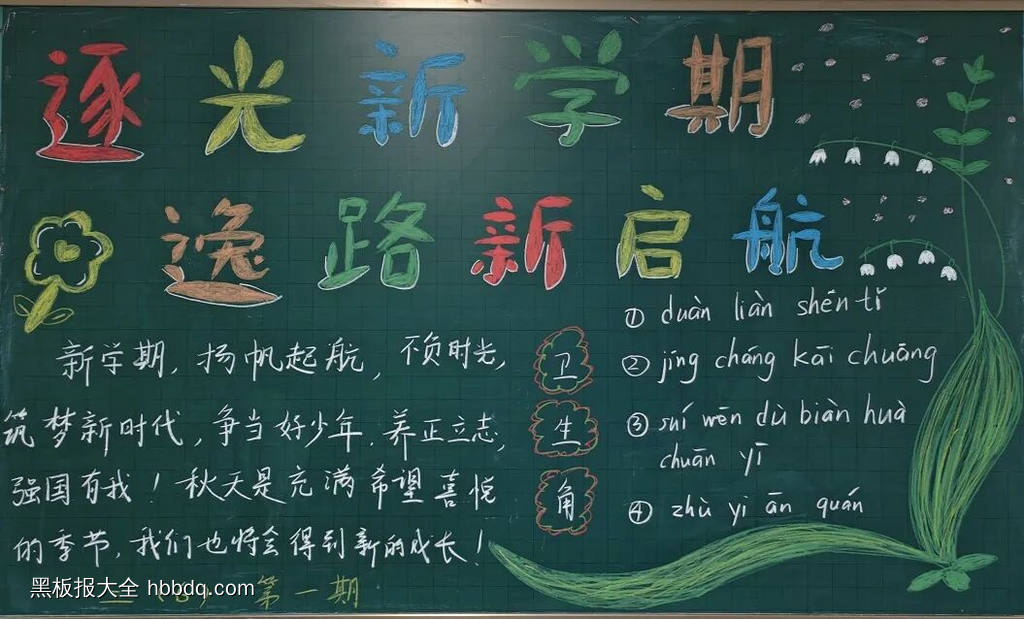 逐光新学期
逸路新启航
新学期，扬帆起航，不负时光，
筑梦新时代，争当好少年，养正立志，
强国有我！秋天是充满希望喜悦
的季节，我们也将会得到新的成长！
第一期
卫
生
角
① duàn liàn shēn tǐ
② jīng cháng kāi chuāng
③ suí wēn dù biàn huà
chuān yī
④ zhù yì ān quán
黑板报大全 hbbdq.com